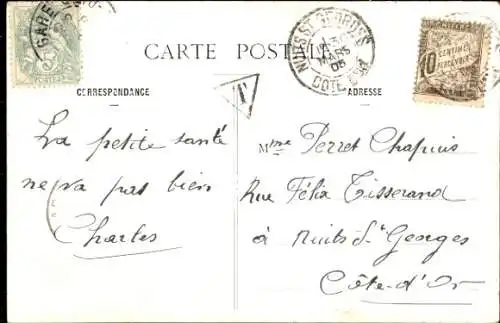 CARTE POSTALE
CORRESPONDANCE
ADRESSE
La petite santé
ne va pas bien
Charles
Mme Perret Chapuis
Rue Félix Tisserand
à Nuits St Georges
Côte-d'Or
T
NUITS ST GEORGES
COTE D'OR
GARE
10
CENTIMES
A PERCEVOIR